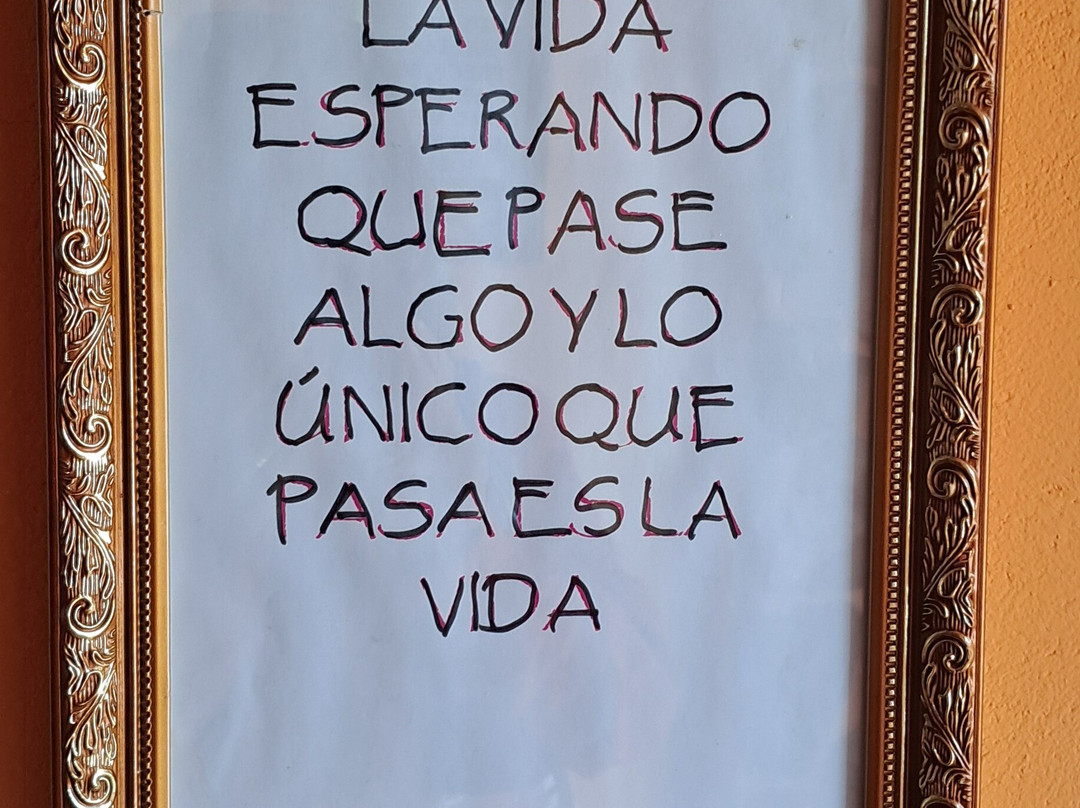 LA VIDA
ESPERANDO
QUE PASE
ALGO Y LO
ÚNICO QUE
PASA ES LA
VIDA